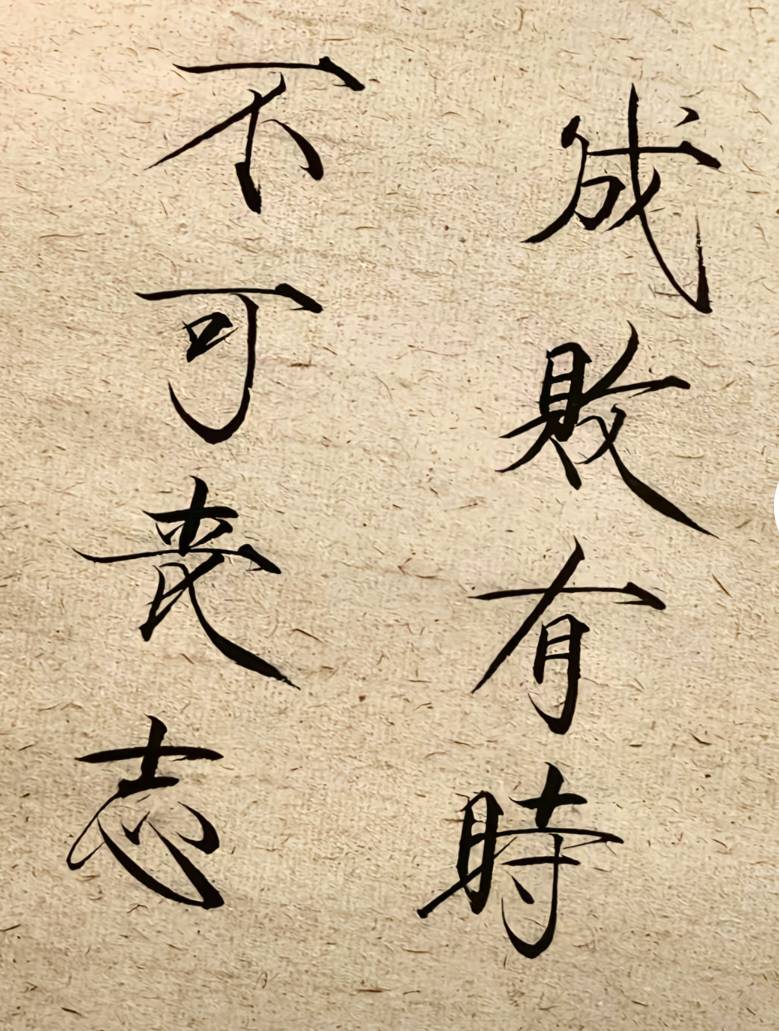 成敗有時
不可喪志